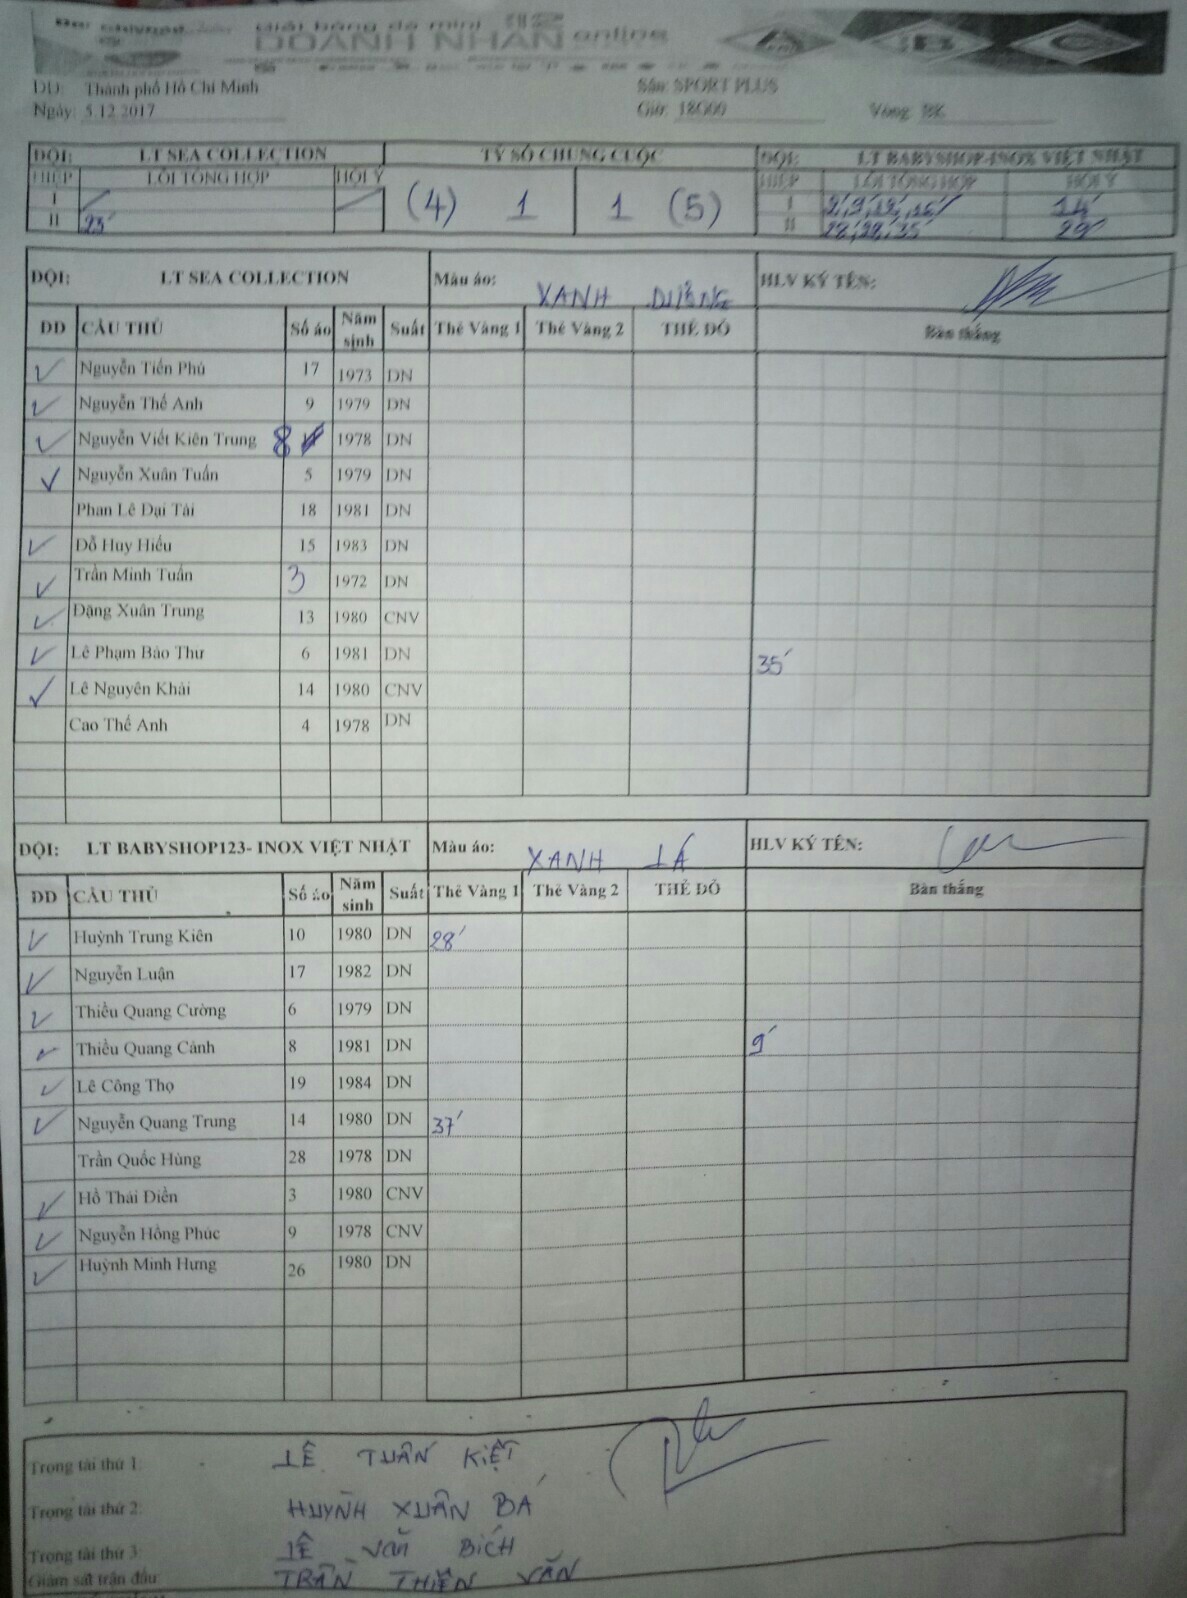 Giải bóng đá mini
DOANH NHÂN online
A B C
DD: Thành phố Hồ Chí Minh Sân: SPORT PLUS
Ngày: 5.12.2017 Giờ: 18G00 Vòng: BK
ĐỘI: LT SEA COLLECTION TỶ SỐ CHUNG CUỘC ĐỘI: LT BABYSHOP-INOX VIỆT NHẬT
HIỆP LỖI TỔNG HỢP HỘI Ý HIỆP LỖI TỔNG HỢP HỘI Ý
I (4) 1 1 (5) I 14'
II 23' II 28', 28', 35' 29'
ĐỘI: LT SEA COLLECTION Màu áo: XANH DƯƠNG HLV KÝ TÊN:
DD CẦU THỦ Số áo Năm sinh Suất Thẻ Vàng 1 Thẻ Vàng 2 THẺ ĐỎ Bàn thắng
✓ Nguyễn Tiến Phú 17 1973 DN
✓ Nguyễn Thế Anh 9 1979 DN
✓ Nguyễn Viết Kiên Trung 8 1978 DN
✓ Nguyễn Xuân Tuấn 5 1979 DN
Phan Lê Đại Tài 18 1981 DN
✓ Đỗ Huy Hiếu 15 1983 DN
✓ Trần Minh Tuấn 3 1972 DN
✓ Đặng Xuân Trung 13 1980 CNV
✓ Lê Phạm Bảo Thư 6 1981 DN 35'
✓ Lê Nguyên Khải 14 1980 CNV
Cao Thế Anh 4 1978 DN
ĐỘI: LT BABYSHOP123- INOX VIỆT NHẬT Màu áo: XANH LÁ HLV KÝ TÊN:
DD CẦU THỦ Số áo Năm sinh Suất Thẻ Vàng 1 Thẻ Vàng 2 THẺ ĐỎ Bàn thắng
✓ Huỳnh Trung Kiên 10 1980 DN 28'
✓ Nguyễn Luận 17 1982 DN
✓ Thiều Quang Cường 6 1979 DN
✓ Thiều Quang Cảnh 8 1981 DN 9'
✓ Lê Công Thọ 19 1984 DN
✓ Nguyễn Quang Trung 14 1980 DN 37'
Trần Quốc Hùng 28 1978 DN
✓ Hồ Thái Diễn 3 1980 CNV
✓ Nguyễn Hồng Phúc 9 1978 CNV
✓ Huỳnh Minh Hưng 26 1980 DN
Trọng tài thứ 1: LÊ TUẤN KIỆT
Trọng tài thứ 2: HUỲNH XUÂN BÁ
Trọng tài thứ 3: LÊ Văn BÍCH
Giám sát trận đấu: TRẦN THIỆN VĂN